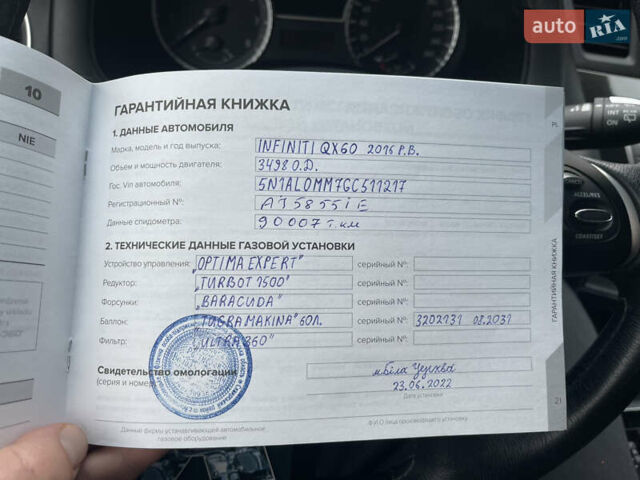 auto RIA
.com
10
NIE
ГАРАНТИЙНАЯ КНИЖКА
1. ДАННЫЕ АВТОМОБИЛЯ
Марка, модель и год выпуска: INFINITI QX60 2016 Р.В.
Объем и мощность двигателя: 3498 О.Д.
Гос. Vin автомобиля: 5N1AL0MM7GC511217
Регистрационный №: AI5855IE
Данные спидометра: 90007 т.км
2. ТЕХНИЧЕСКИЕ ДАННЫЕ ГАЗОВОЙ УСТАНОВКИ
Устройство управления: „OPTIMA EXPERT" серийный №:
Редуктор: „TURBOT 1500" серийный №:
Форсунки: „BARACUDA" серийный №:
Баллон: „TUGRA MAKINA" 60л. серийный №: 3202131 08.2031
Фильтр: „ULTRA 360" серийный №:
Свидетельство омологации
(серия и номер)
м.Біла Церква
23.06.2022
Дата установки
Данные фирмы устанавливающей автомобильное
газовое оборудование
Ф.И.О лица производившего установку
ГАРАНТИЙНАЯ КНИЖКА
21
PL
CANCEL
ACCEL/RES
COAST/SET